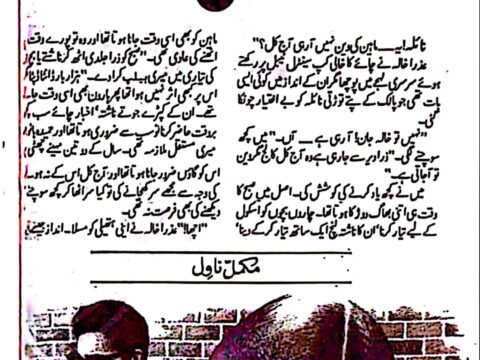 نائلہ! یہ ــــ ماہین کی وین نہیں آرہی آج کل؟“
عذرا خالہ نے چائے کا خالی کپ سینٹرل ٹیبل پر رکھتے
ہوئے سرسری لہجے میں پوچھا مگر ان کے انداز میں کوئی ایسی
بات تھی جو پالک کے پتے توڑتی نائلہ کو بے اختیار چونکا
گئی۔
”نہیں تو خالہ جان! آرہی ہے ــــ آں۔“ میں کچھ
سوچنے لگی۔ ”ذرا دیر سے جارہی ہے وہ آج کل کالج مگر وین
تو آجاتی ہے۔“
میں نے کچھ یاد کرنے کی کوشش کی۔ اصل میں صبح کا
وقت ہی اتنی بھاگ دوڑ کا ہوتا تھا۔ چاروں بچوں کو اسکول
کے لیے تیار کرنا ’ان کا ناشتہ لنچ ایک ساتھ تیار کر کے دینا‘
ماہین کو بھی اسی وقت جانا ہوتا تھا اور وہ تو پورے وقت
اٹھنے کی عادی تھی۔ ”صبح کو ذرا جلدی اٹھ کر ناشتے یا بچوں
کی تیاری میں میری ہیلپ کرا دے۔“ ہزار بار ڈانٹا ڈپٹا
اس پر بھی اثر نہیں ہوا تھا پھر ہارون بھی اسی وقت جاتے
تھے۔ ان کے کپڑے جوتے ناشتہ ’ اخبار چائے سب کچھ
بروقت حاضر کرنا تو سب سے ضروری ہوتا تھا اور حمیدہ بانو
میری مستقل ملازمہ تھی۔ سال کے دو تین مہینے چھٹی
اس کو گاؤں ضرور جانا ہوتا تھا اور آج کل اس کے نہ ہونے
کی وجہ سے مجھے سر کھجانے کی تو کیا سر اٹھا کر کچھ سوچنے
دیکھنے کی بھی فرصت نہ تھی۔
”اچھا!“ عذرا خالہ نے اپنی ہتھیلی کو مسلا۔ انداز جیسے
مکمل ناول